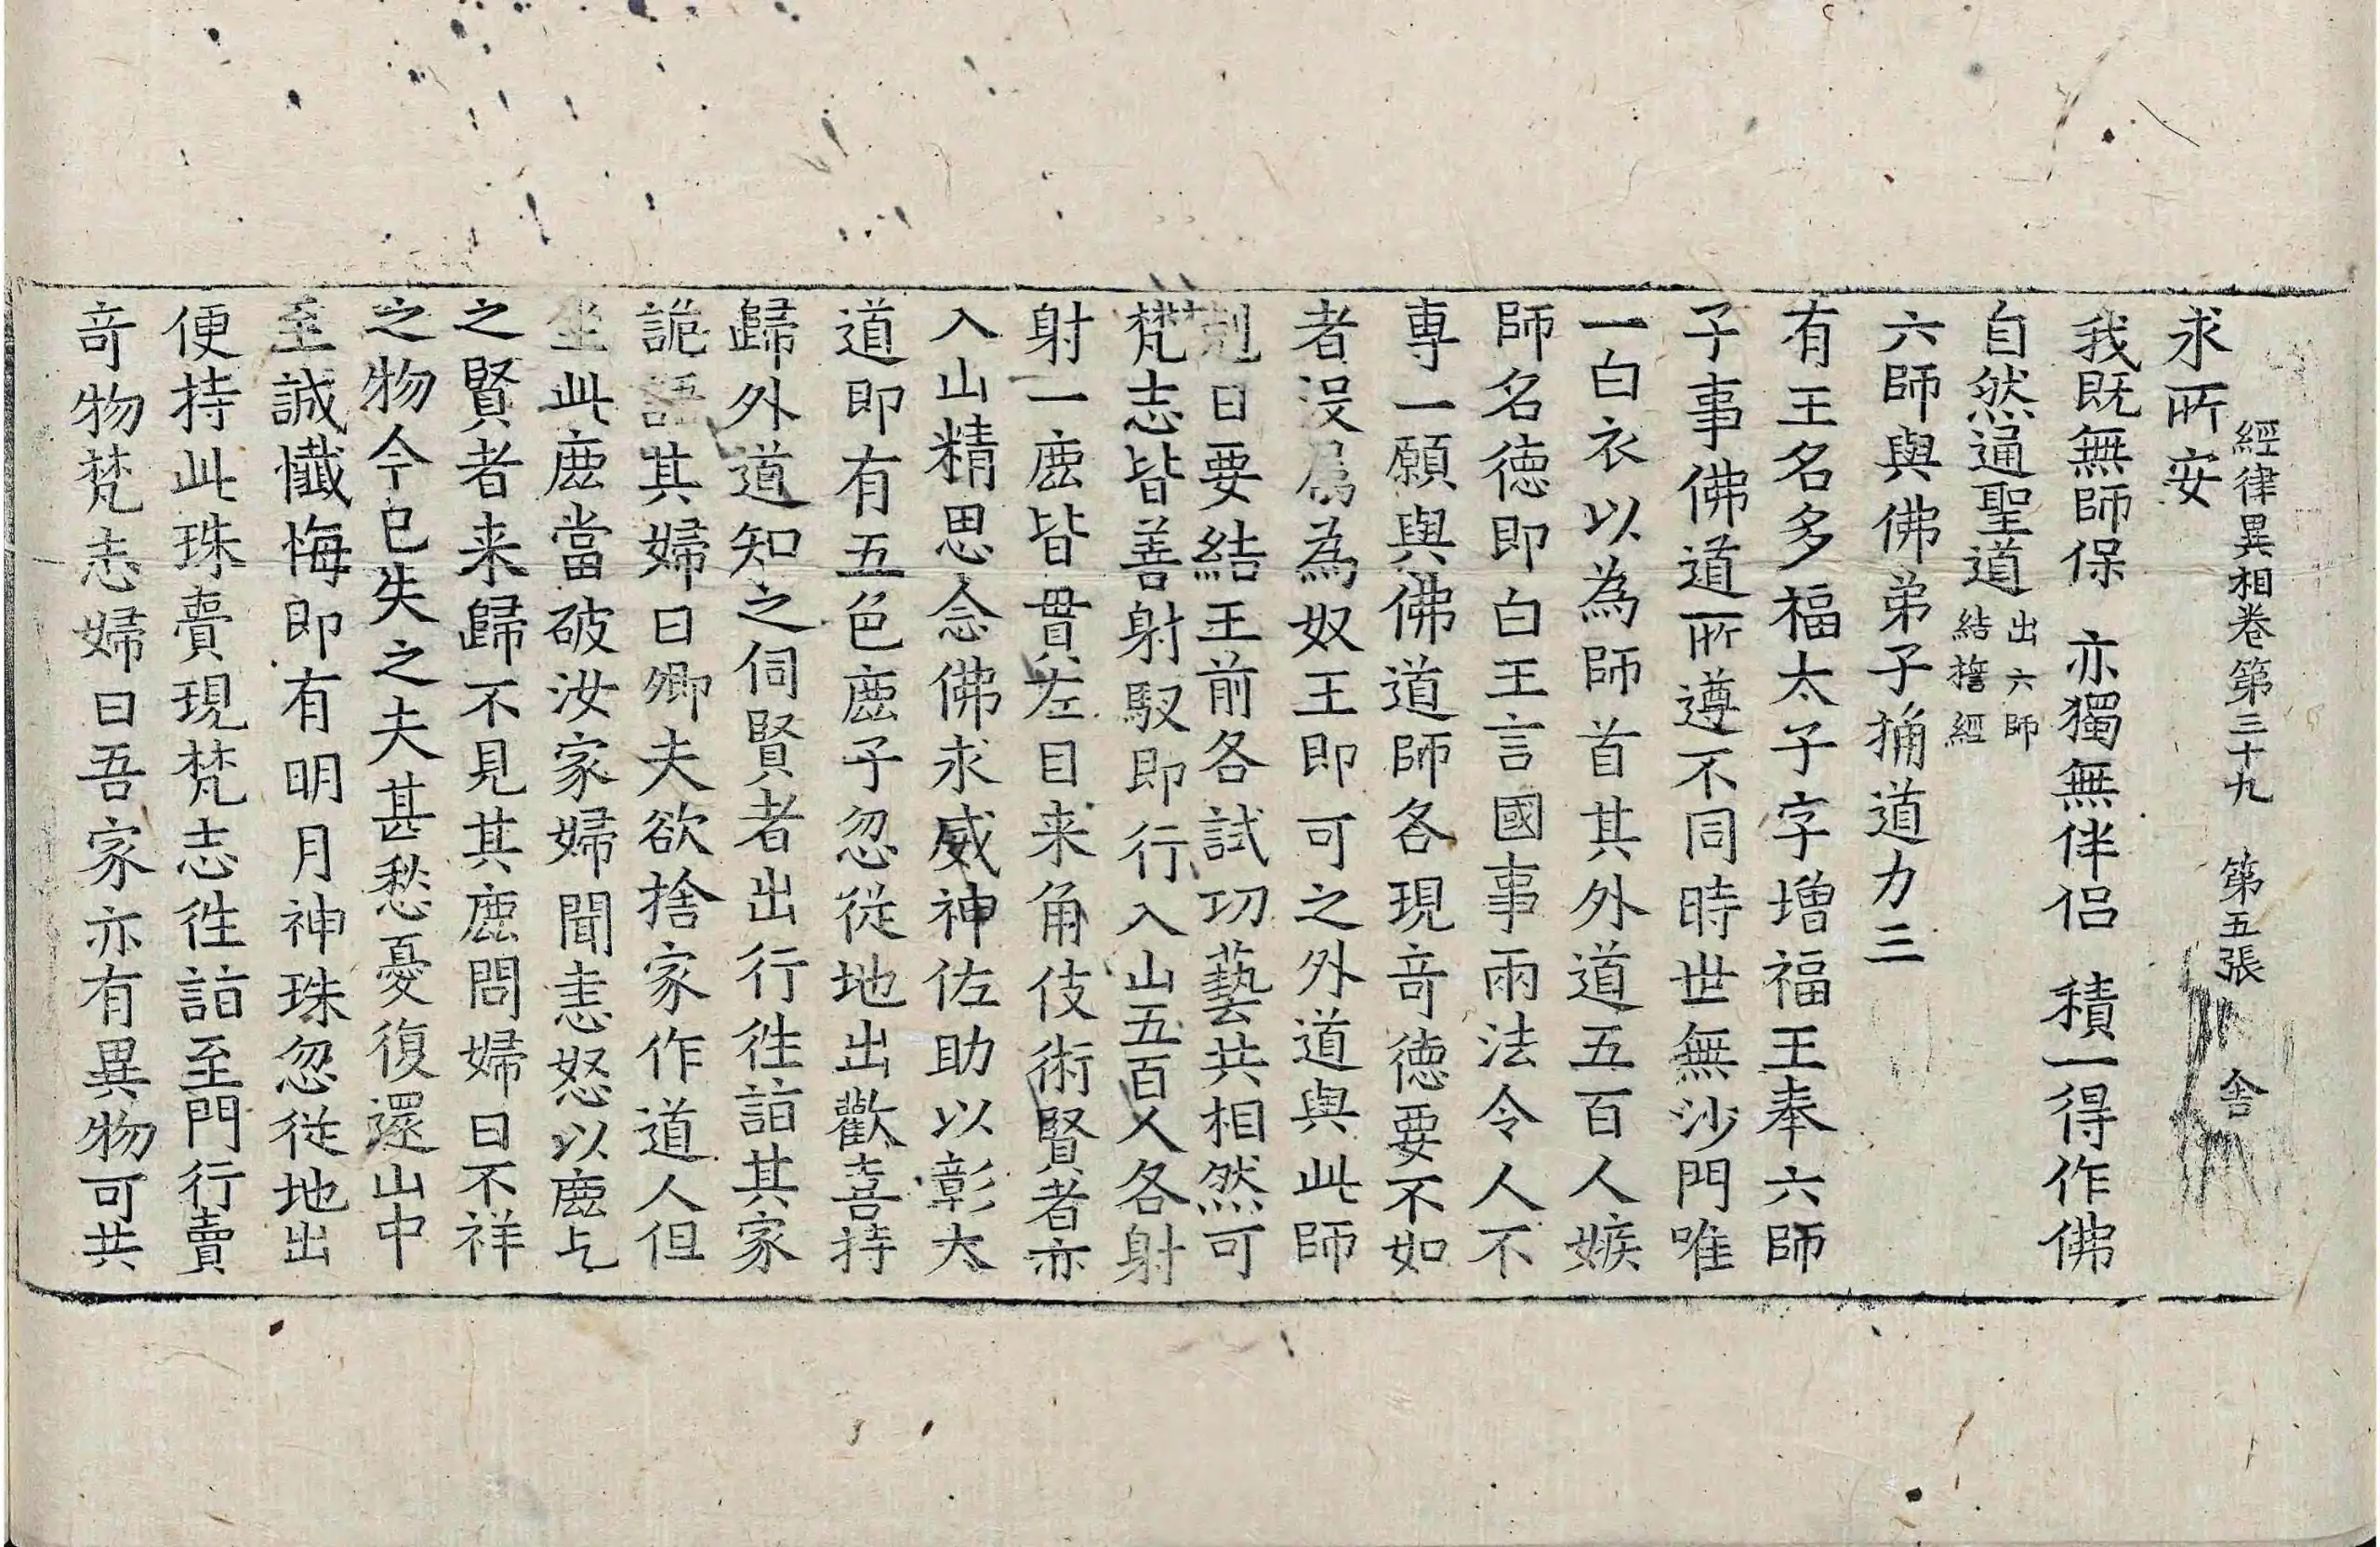 經律異相卷第三十九 第五張 舍
求所安
我既無師保 亦獨無伴侣 積一得作佛
自然通聖道 出六師
結誓經
六師與佛弟子捔道力三
有王名多福太子字增福王奉六師
子事佛道所遵不同時世無沙門唯
一白衣以為師首其外道五百人嫉
師名德即白王言國事兩法令人不
專一願與佛道師各現竒德要不如
者没属為奴王即可之外道與此師
剋日要結王前各試功藝共相然可
梵志皆善射馭即行入山五百人各射
射一鹿皆貫左目来角伎術賢者亦
入山精思念佛求威神佐助以彰大
道即有五色鹿子忽從地出歡喜持
歸外道知之伺賢者出行往詣其家
詭語其婦曰卿夫欲捨家作道人但
坐此鹿當破汝家婦聞恚怒以鹿乞
之賢者来歸不見其鹿問婦曰不祥
之物今已失之夫甚愁憂復還山中
至誠懺悔即有明月神珠忽從地出
便持此珠賣現梵志往詣至門行賣
竒物梵志婦曰吾家亦有異物可共